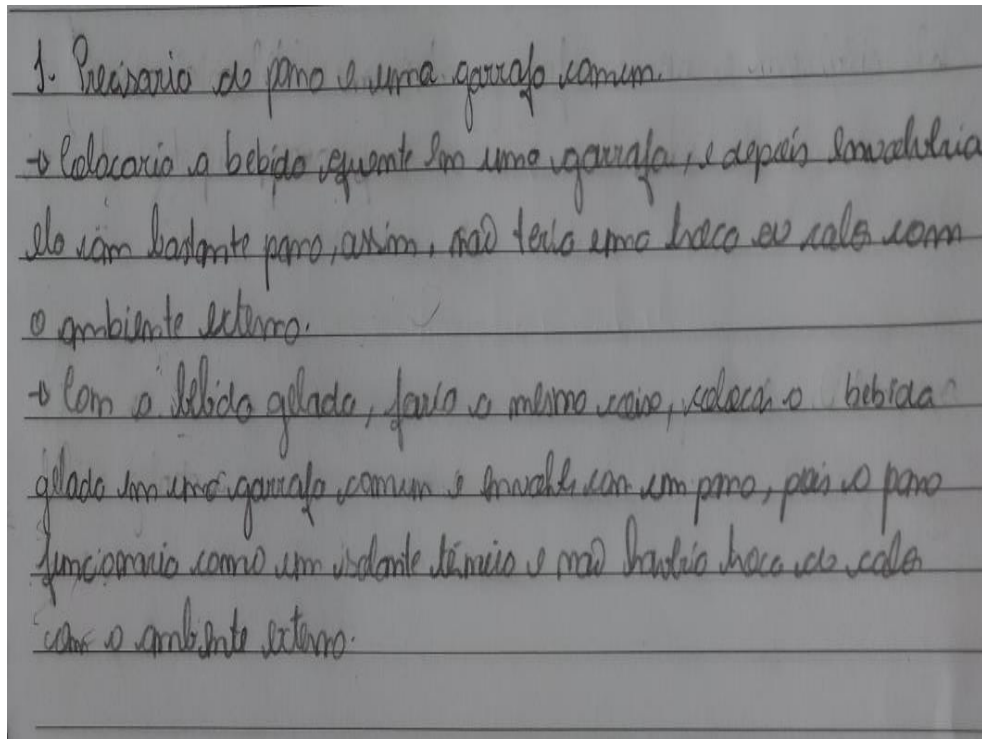 1. Precisaria de pano e uma garrafa comum.
→ Colocaria a bebida quente em uma garrafa, e depois envolveria
ela com bastante pano, assim, não teria uma troca de calor com
o ambiente externo.
→ Com a bebida gelada, faria a mesma coisa, colocar a bebida
gelada em uma garrafa comum e envolve com um pano, pois o pano
funcionaria como um isolante térmico e não haveria troca de calor
com o ambiente externo.